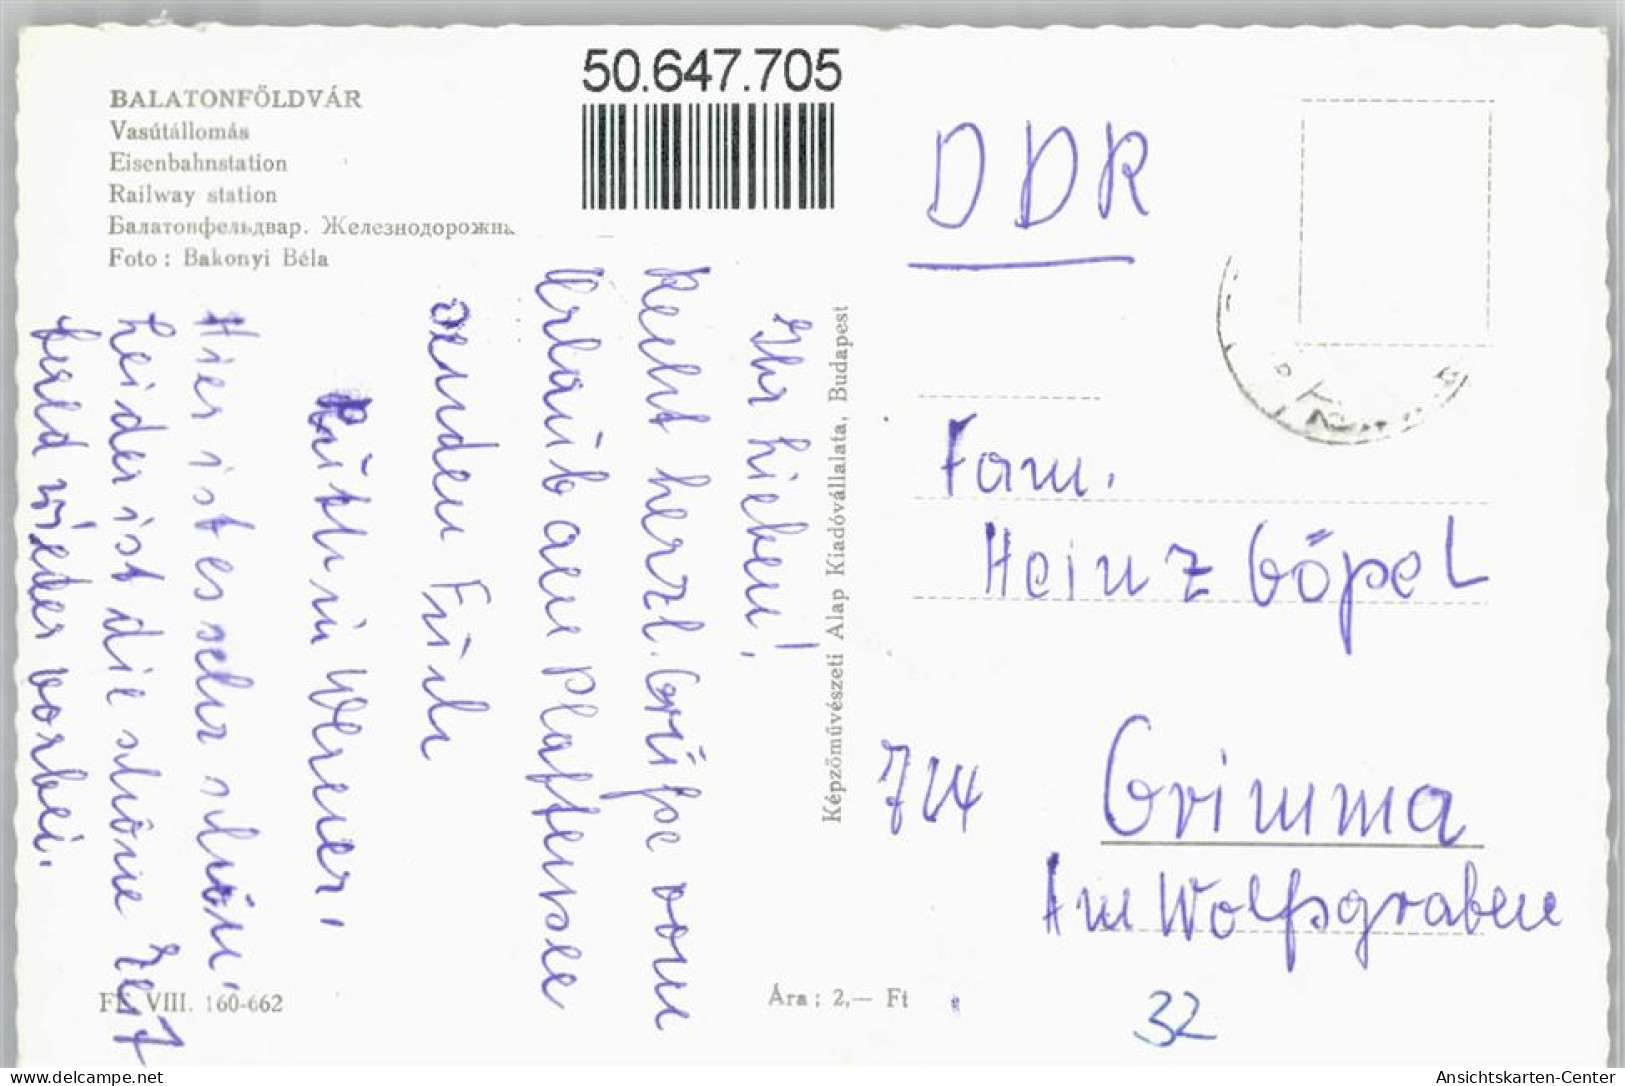 50.647.705
BALATONFÖLDVÁR
Vasútállomás
Eisenbahnstation
Railway station
Балатонфельдвар. Железнодорожна
Foto: Bakonyi Béla
Ihr Lieben!
Recht herzl. Grüße vom
Urlaub am Plattensee
senden Euch
Werner.
Hier ist es sehr schön.
Leider ist die schöne Zeit
bald wieder vorbei.
Képzőművészeti Alap Kiadóvállalata, Budapest
DDR
Fam.
Heinz Göpel
724 Grimma
Am Wolfsgraben
32
VIII. 160-662
Ára: 2,— Ft
delcampe.net
Ansichtskarten-Center